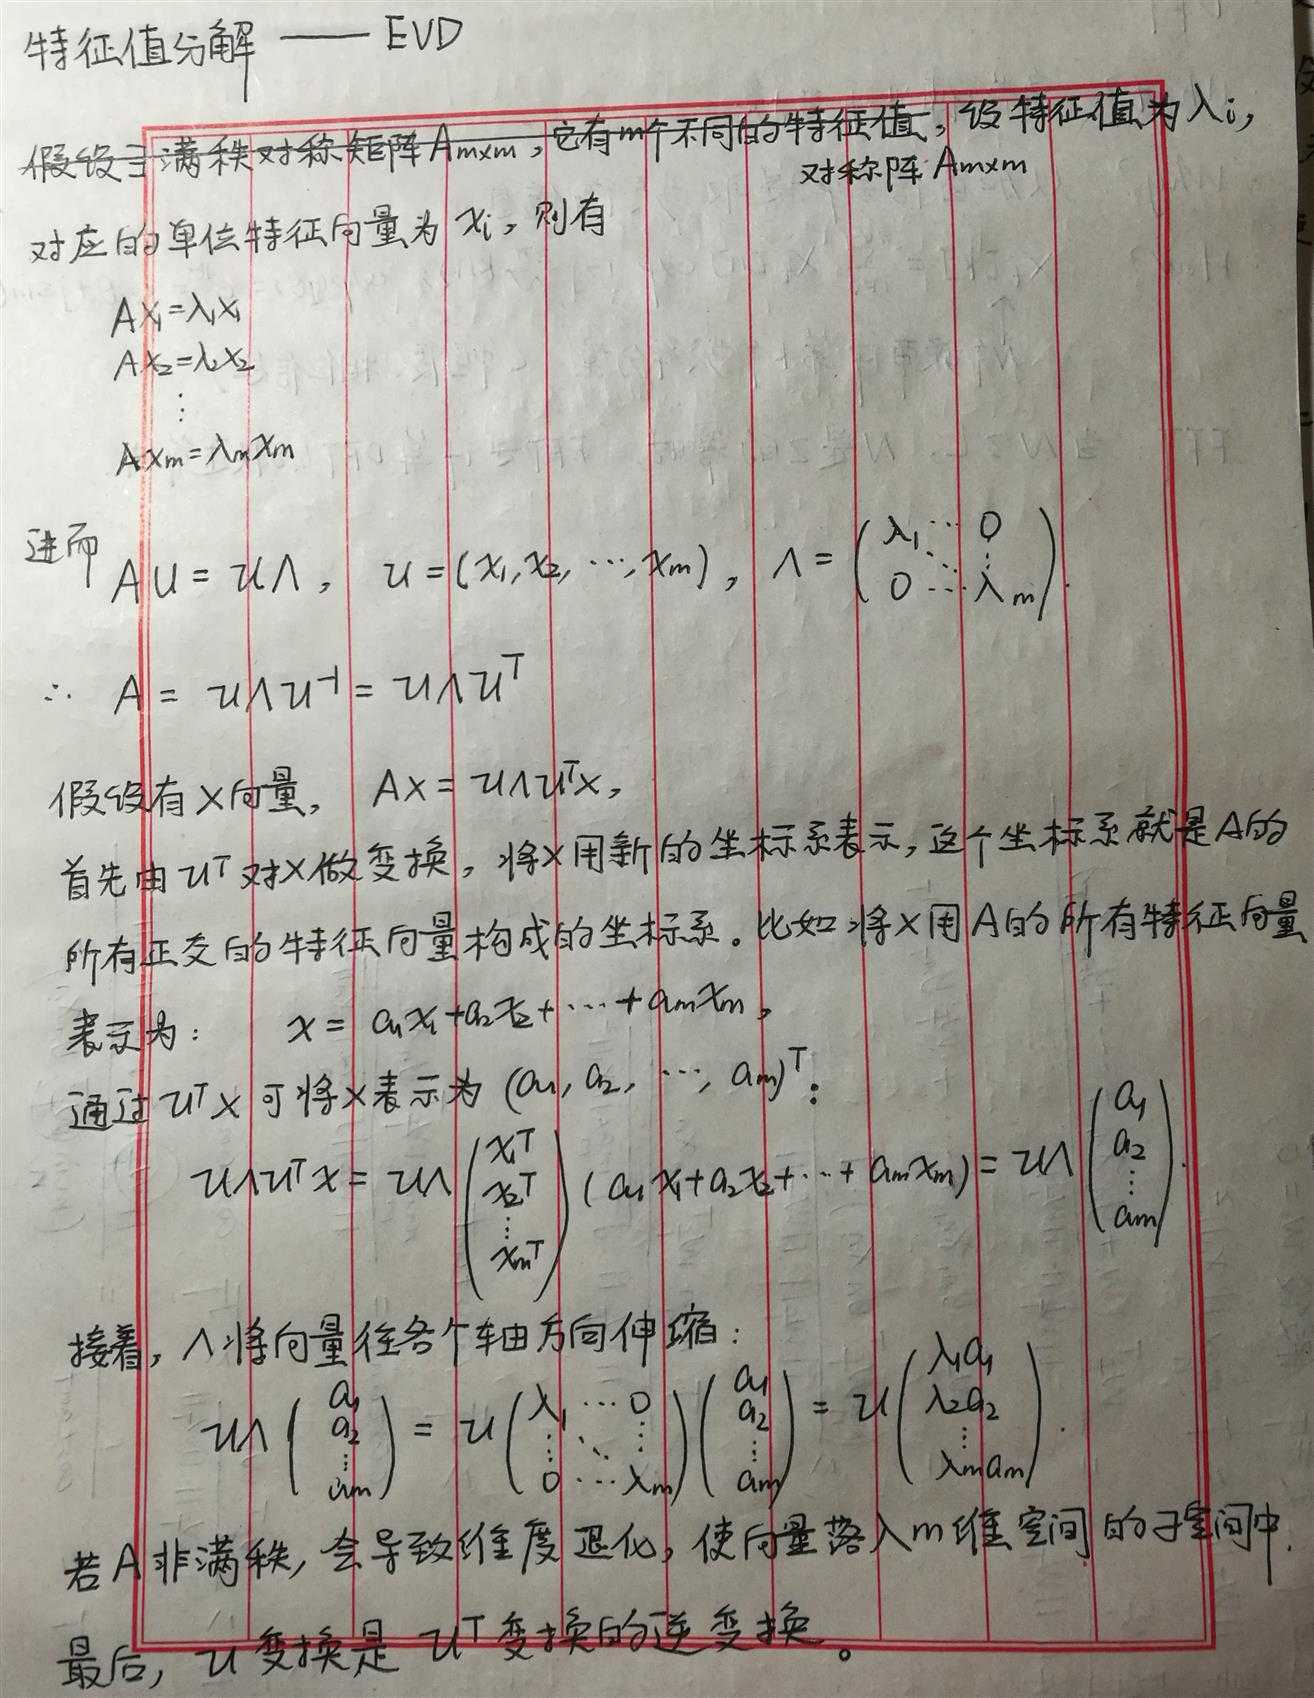 特征值分解 —— EVD
假设于满秩对称矩阵 Am×m，它有m个不同的特征值，设特征值为λi，
对称阵 Am×m
对应的单位特征向量为 xi，则有
Ax1=λ1x1
Ax2=λ2x2
⋮
Axm=λmxm
进而 AU = UΛ， U = (x1, x2, ⋯, xm)， Λ = (λ1 ⋯ 0
⋱ ⋮
0 ⋯ λm).
∴ A = UΛU⁻¹ = UΛUᵀ
假设有X向量， AX = UΛUᵀX，
首先由Uᵀ对X做变换，将X用新的坐标系表示，这个坐标系就是A的
所有正交的特征向量构成的坐标系。比如将X用A的所有特征向量
表示为： x = a1x1+a2x2+⋯+amxm，
通过UᵀX可将X表示为 (a1, a2, ⋯, am)ᵀ：
UΛUᵀx = UΛ (x1ᵀ x2ᵀ ⋮ xmᵀ) (a1x1+a2x2+⋯+amxm) = UΛ (a1 a2 ⋮ am).
接着，Λ将向量往各个轴方向伸缩：
UΛ (a1 a2 ⋮ am) = U (λ1 ⋯ 0 ⋮ ⋱ ⋮ 0 ⋯ λm) (a1 a2 ⋮ am) = U (λ1a1 λ2a2 ⋮ λmam).
若A非满秩，会导致维度退化，使向量落入m维空间的子空间中.
最后，U变换是Uᵀ变换的逆变换。